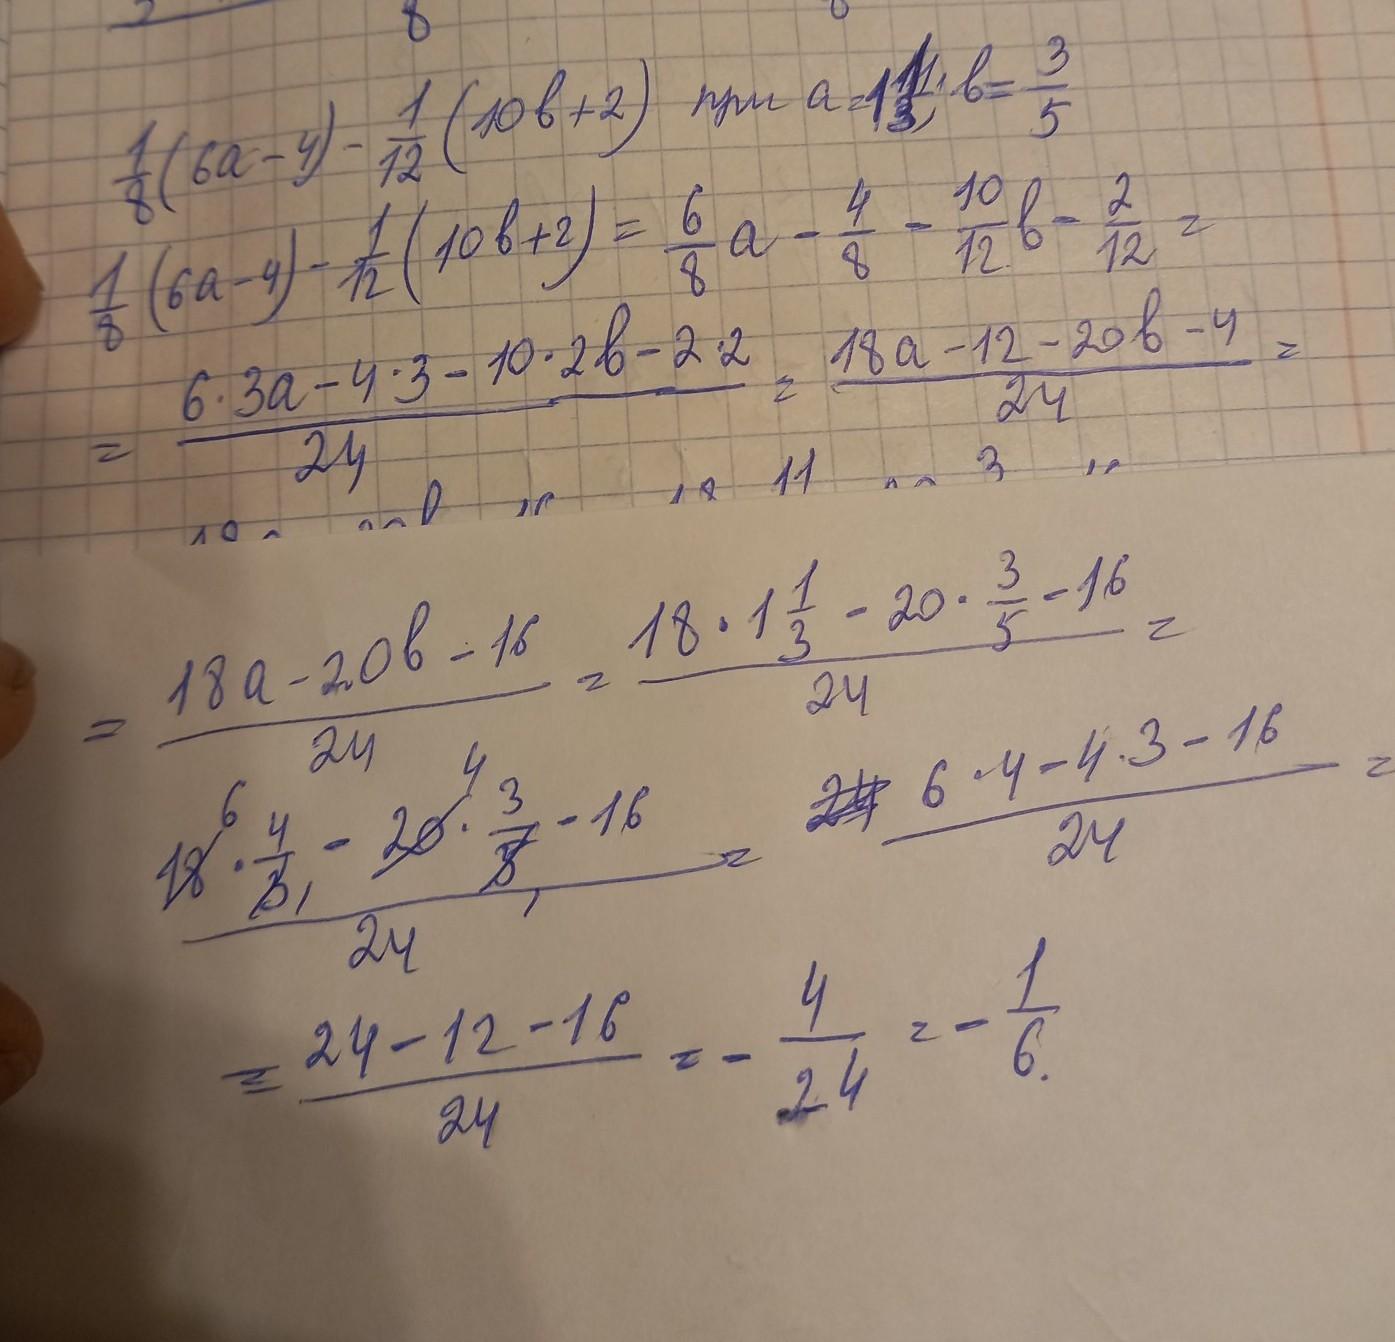 8
1/8(6a-4)-1/12(10b+2) при a=1 1/3, b=3/5
1/8(6a-4)-1/12(10b+2)=6/8a-4/8-10/12b-2/12=
=(6·3a-4·3-10·2b-2·2)/24=(18a-12-20b-4)/24=
11 3
=(18a-20b-16)/24=(18·1 1/3-20·3/5-16)/24=
(18·4/3-20·3/5-16)/24=(6·4-4·3-16)/24=
6 4
1
=(24-12-16)/24=-4/24=-1/6.